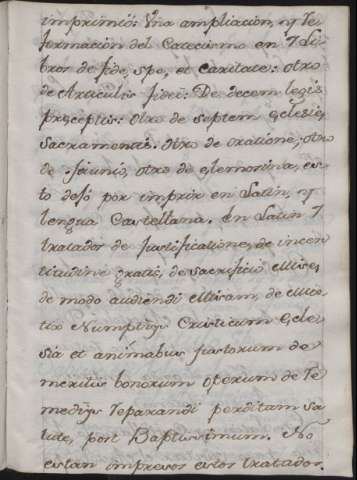 imprimió: Una ampliacion, q̃ Re
formacion del Catecismo en 7 Li
bros de fide, spe, et caritate: otro
de Articulis fidei: De decem legis
præceptis: Otro de septem Eclesiæ
Sacramentis. Otro de oratione, otro
de jejunio, otro de elemosina, es
to dejó por imprix en Latin, q̃
lengua Castellana. En Latin 7
tratador de justificatione, de incon
gratis, de sacrificio Misse,
de modo audiendi Missam, de
Numptijs Eccle
sia et animabus justorum de
meritis bonorum operum de Re
medijs reparandi perditam sa
lute, port Baptusimum. No
estan impresor estor tratador.